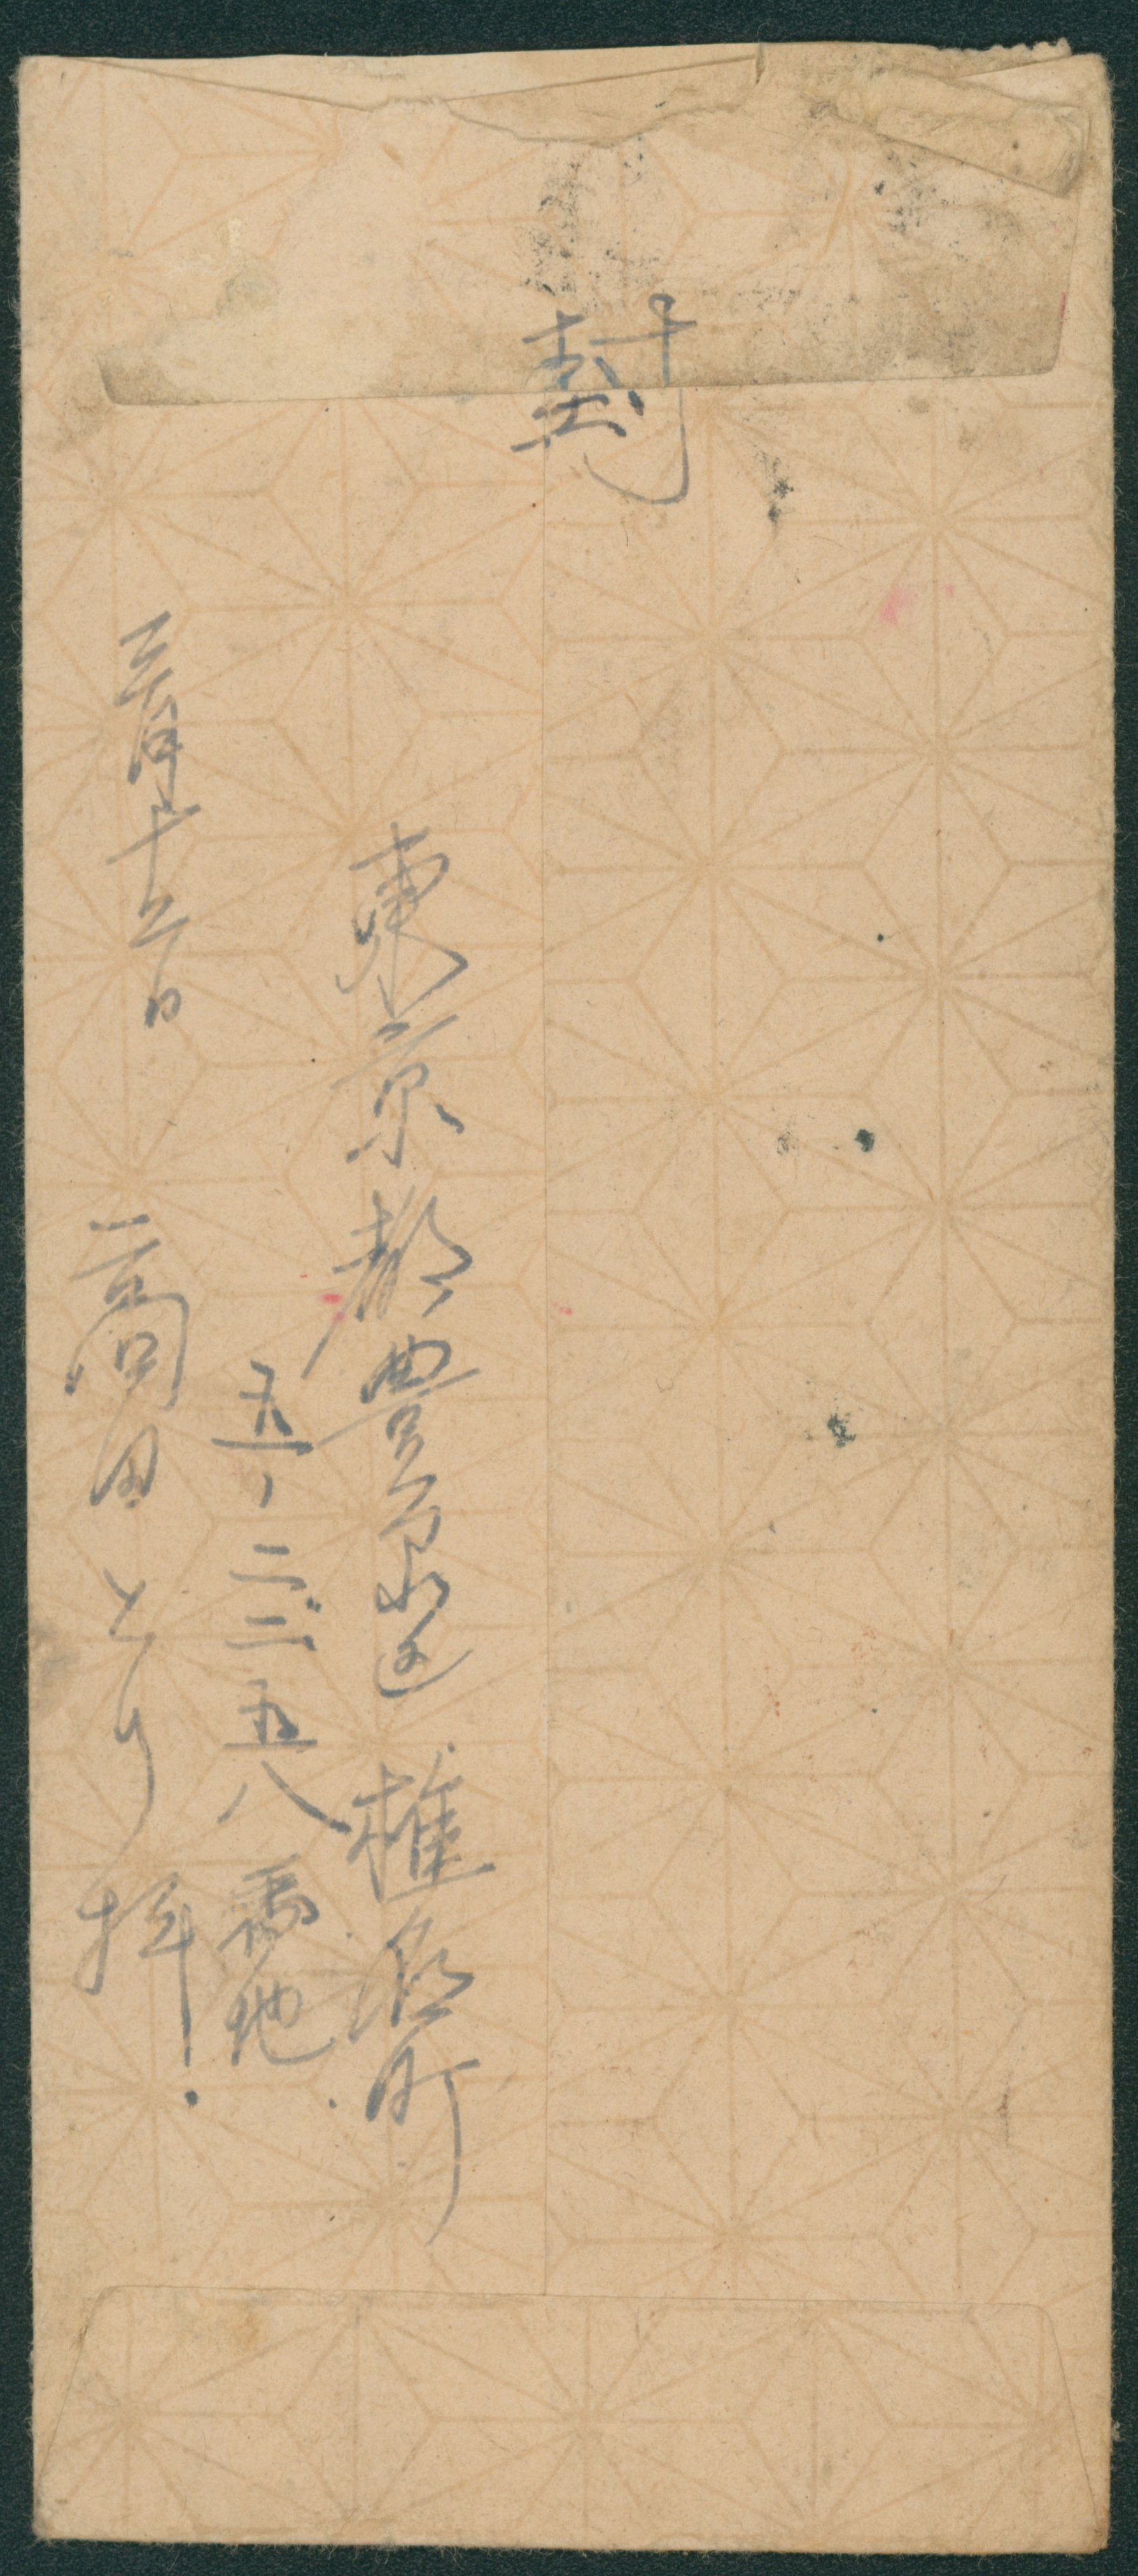 封
東京都豊島区椎名町
五ノ二二五八番地
三月十五日 高田とり拝